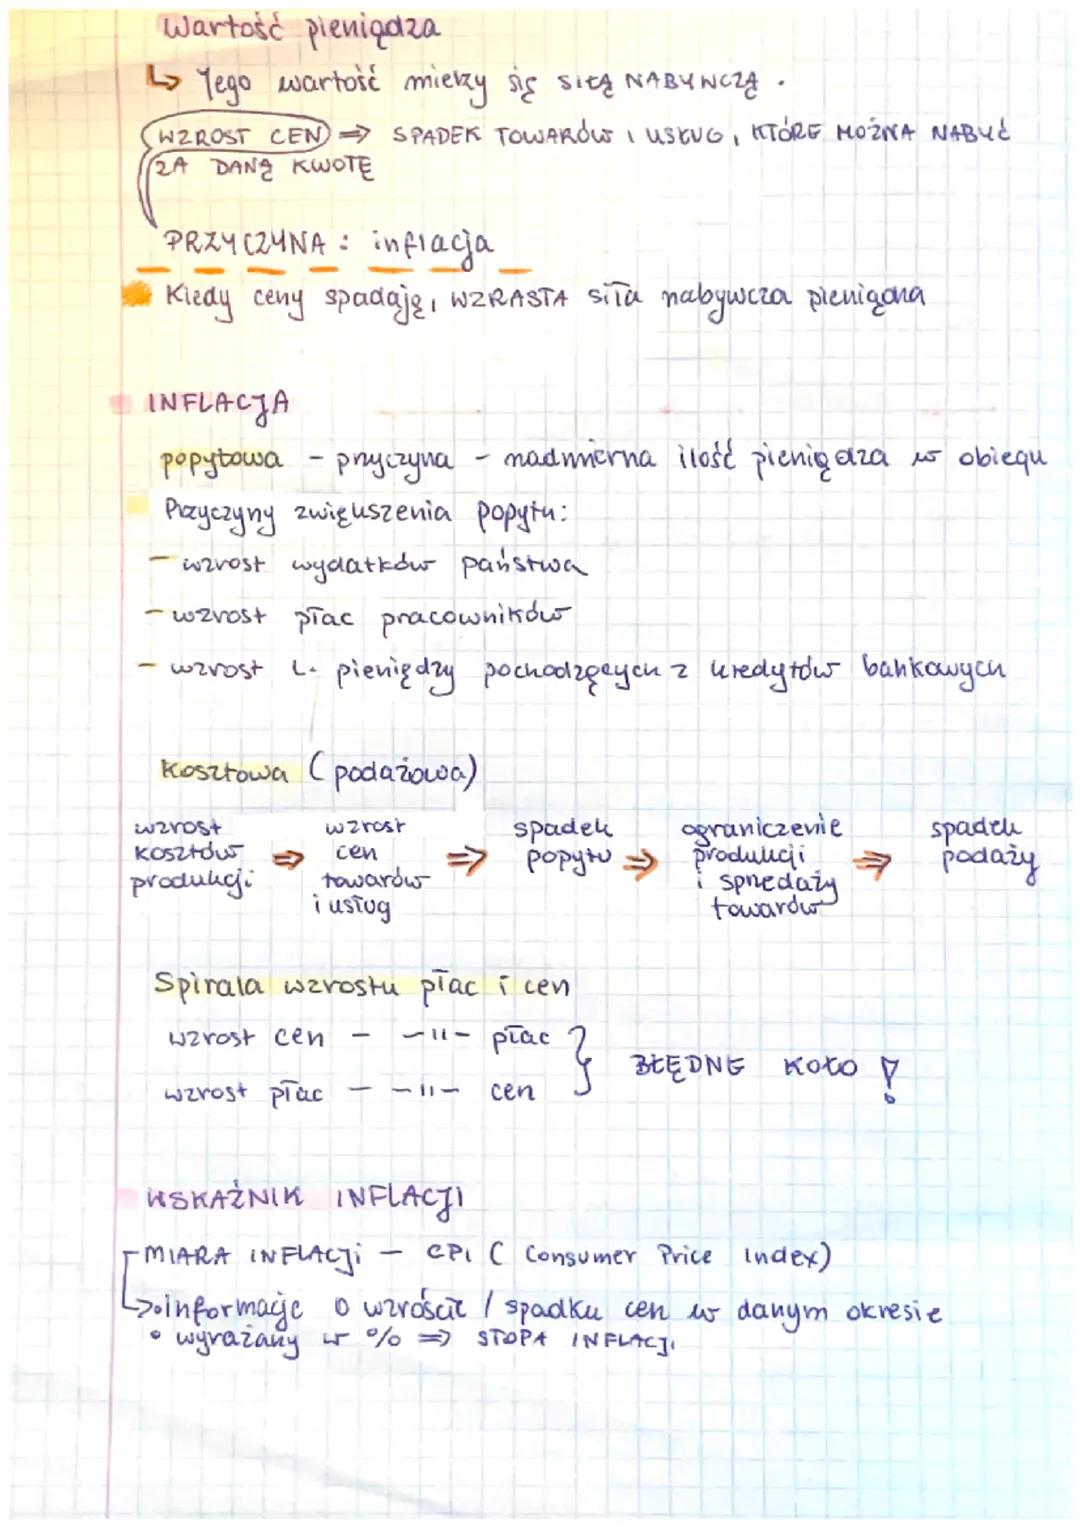 Wartość pieniądza
↳ Jego wartość mierzy się SIŁĄ NABYWCZĄ.
WZROST CEN ⇒ SPADEK TOWARÓW I USŁUG, KTÓRE MOŻNA NABYĆ
ZA DANĄ KWOTĘ
PRZYCZYNA: inflacja
Kiedy ceny spadają, WZRASTA siła nabywcza pieniądza
INFLACJA
popytowa - przyczyna - nadmierna ilość pieniędza w obiegu
Przyczyny zwiększenia popytu:
- wzrost wydatków państwa
- wzrost płac pracowników
- wzrost l. pieniędzy pochodzących z kredytów bankowych
Kosztowa (podażowa)
wzrost kosztów produkcji ⇒ wzrost cen towarów i usług ⇒ spadek popytu ⇒ ograniczenie produkcji i sprzedaży towarów ⇒ spadek podaży
Spirala wzrostu płac i cen
wzrost cen - -11- płac
wzrost płac - -11- cen } BŁĘDNE KOŁO !
WSKAŹNIK INFLACJI
MIARA INFLACJI - CPI (Consumer Price Index)
↳ • informacje o wzroście / spadku cen w danym okresie
• wyrażany w % ⇒ STOPA INFLACJI